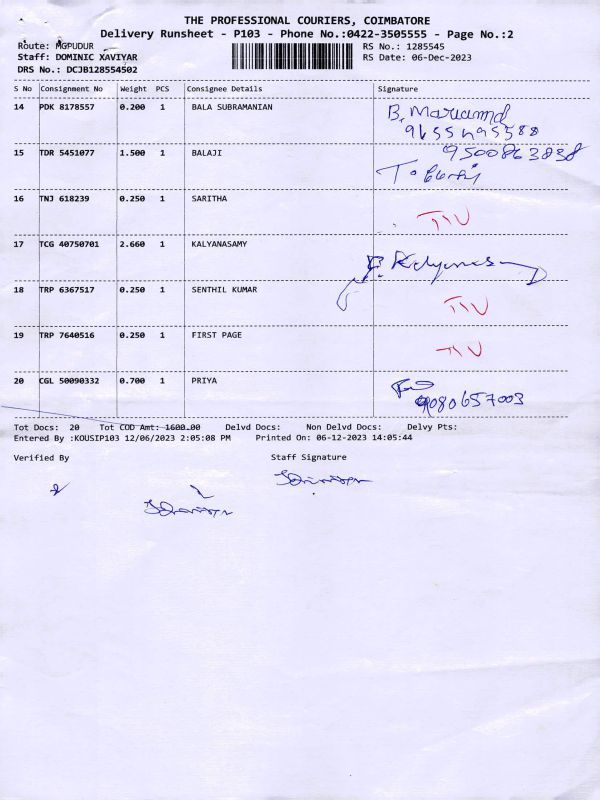 THE PROFESSIONAL COURIERS, COIMBATORE
Delivery Runsheet - P103 - Phone No.:0422-3505555 - Page No.:2
Route: MGPUDUR RS No.: 1285545
Staff: DOMINIC XAVIYAR RS Date: 06-Dec-2023
DRS No.: DCJB128554502
S No Consignment No Weight PCS Consignee Details Signature
14 PDK 8178557 0.200 1 BALA SUBRAMANIAN
15 TDR 5451077 1.500 1 BALAJI 9500863838
16 TNJ 618239 0.250 1 SARITHA
17 TCG 40750701 2.660 1 KALYANASAMY
18 TRP 6367517 0.250 1 SENTHIL KUMAR
19 TRP 7640516 0.250 1 FIRST PAGE
20 CGL 50090332 0.700 1 PRIYA
9080657003
Tot Docs: 20 Tot COD Amt: 1600.00 Delvd Docs: Non Delvd Docs: Delvy Pts:
Entered By :KOUSIP103 12/06/2023 2:05:08 PM Printed On: 06-12-2023 14:05:44
Verified By Staff Signature